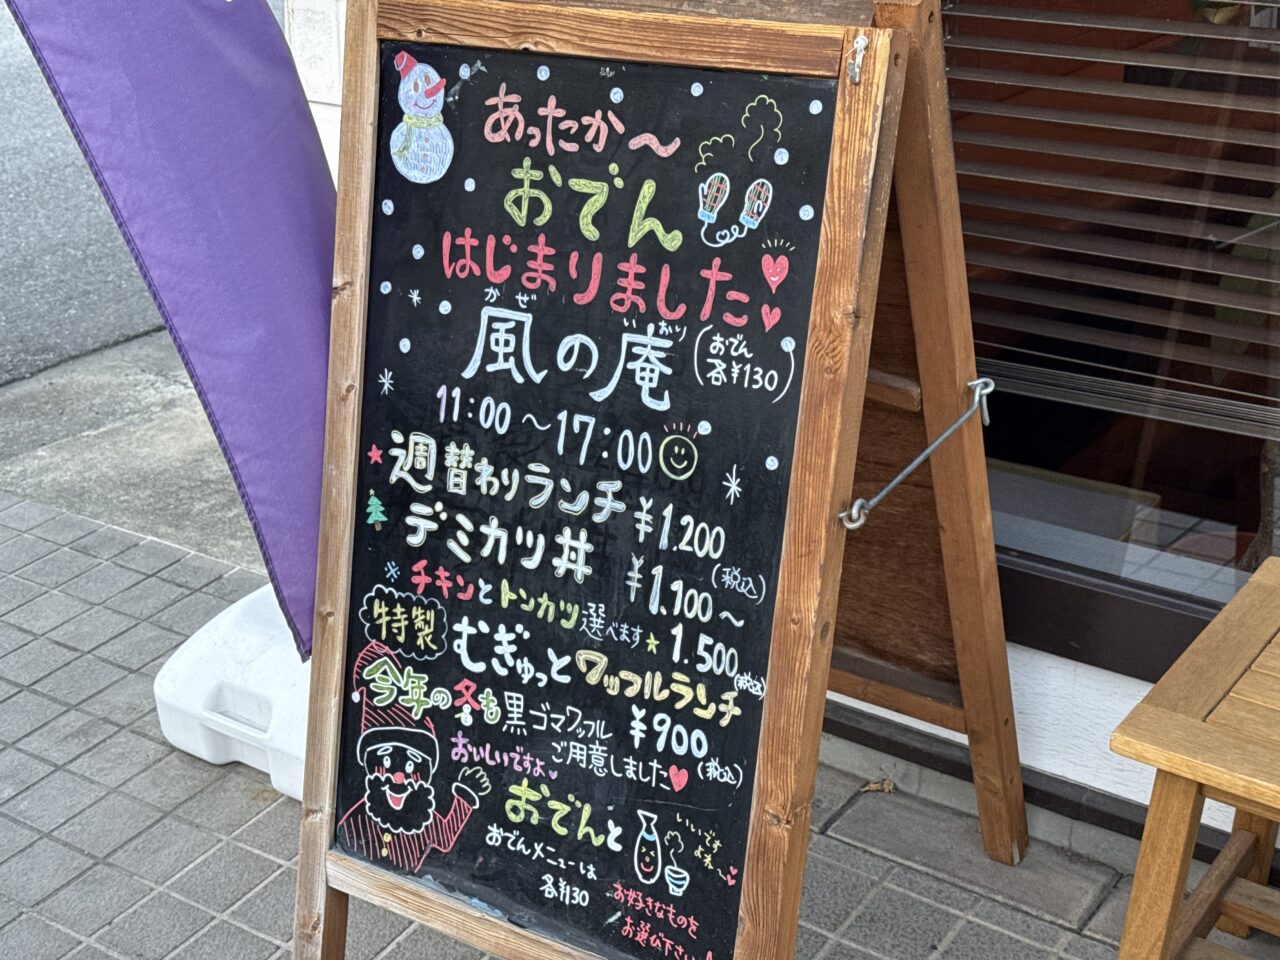 あったか〜
おでん
はじまりました
かぜ いおり
風の庵 (おでん 各¥130)
11:00〜17:00
★週替わりランチ ¥1.200
(税込)
デミカツ丼 ¥1.100〜
チキンとトンカツ選べます★ 1.500(税込)
特製 むぎゅっとワッフルランチ
¥900
(税込)
今年の冬も黒ゴマワッフル
ご用意しました
おいしいですよ
おでんと
いいですよね〜
おでんメニューは
各¥130
お好きなものを
お選び下さい!